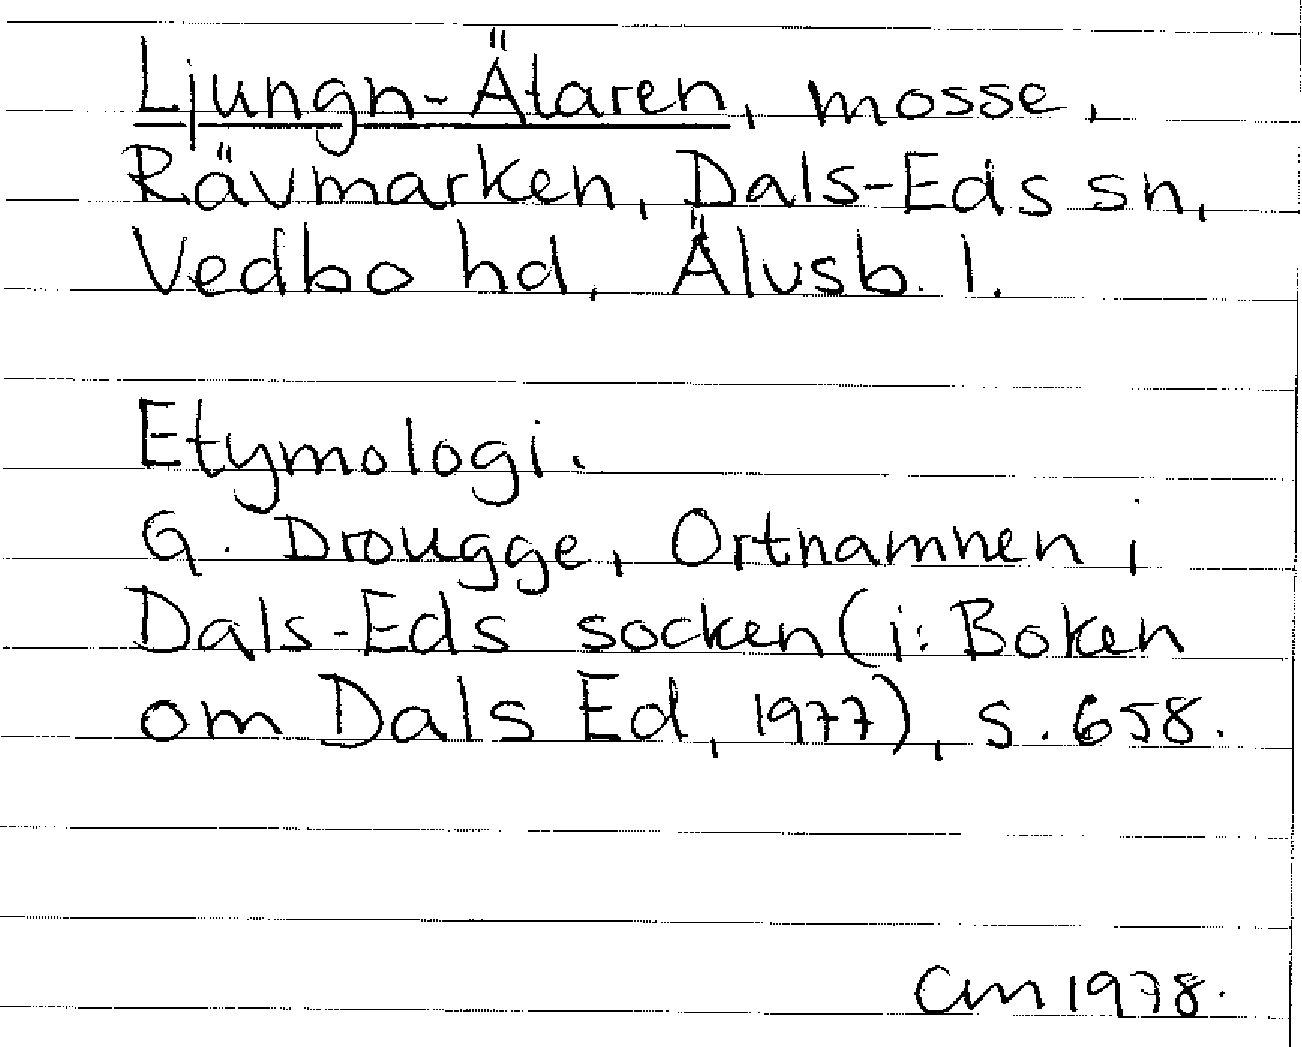 Ljungn-Älaren, mosse,
Rävmarken, Dals-Eds sn,
Vedbo hd, Älvsb. l.
Etymologi.
G. Drougge, Ortnamnen i
Dals-Eds socken (i: Boken
om Dals Ed, 1977), s. 658.
Cm 1978.